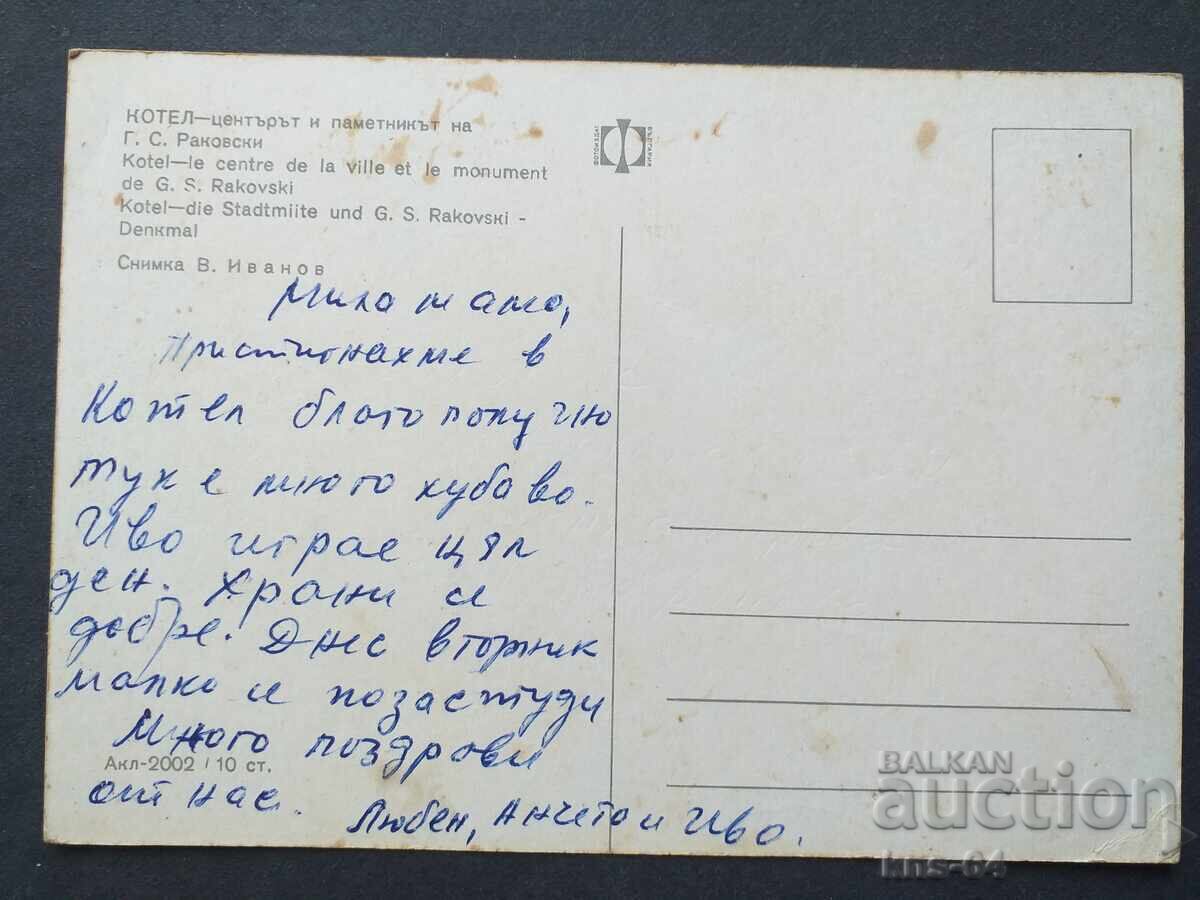 КОТЕЛ—центърът и паметникът на
Г. С. Раковски
Kotel—le centre de la ville et le monument
de G. S. Rakovski
Kotel—die Stadtmiite und G. S. Rakovski -
Denkmal
Снимка В. Иванов
ФОТОИЗДАТ
БЪЛГАРИЯ
Мила мамо,
Пристигнахме в
Котел благополучно
тук е много хубаво.
Иво играе цял
ден. Храни се
добре. Днес вторник
малко се позастуди
Много поздрави
Акл-2002 / 10 ст.
от нас.
Любен, Анчето и Иво.
BALKAN
auction
kns-64